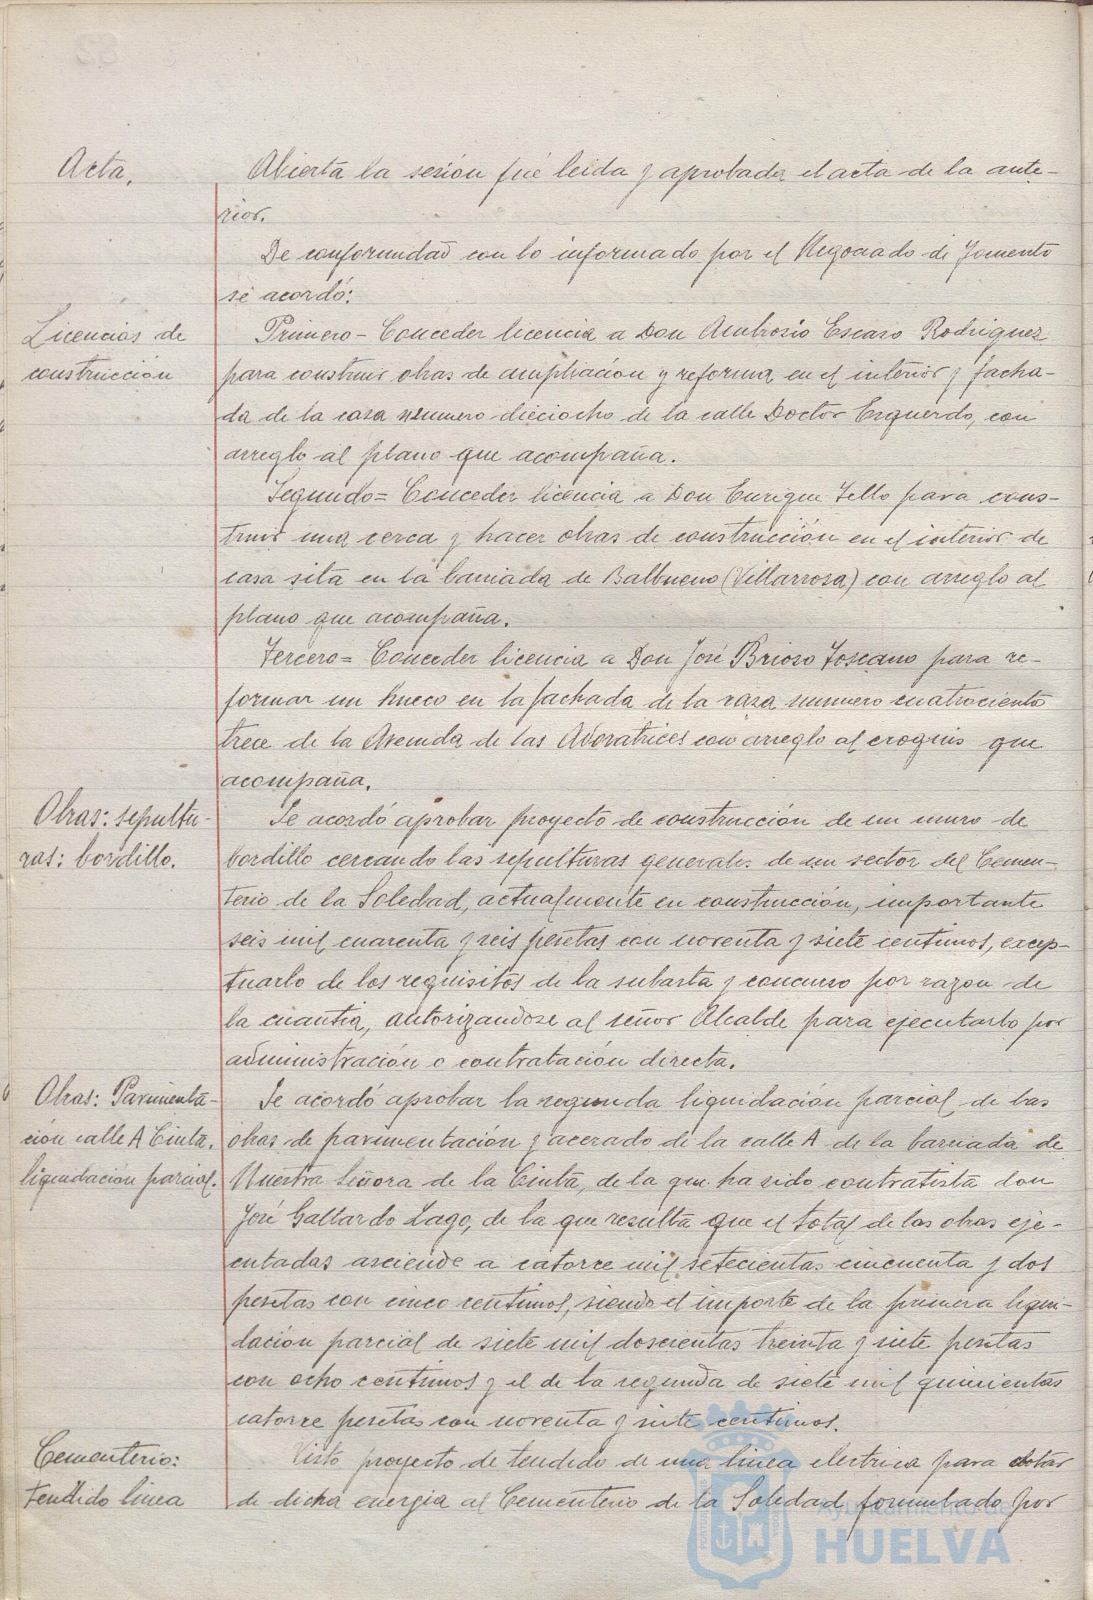 Acta.
Abierta la sesión fué leida y aprobada el acta de la ante-
rior.
De conformidad con lo informado por el Negociado de Fomento
se acordó:
Licencias de
construcción
Primero- Conceder licencia a Don Ambrosio Escaso Rodriguez
para construir obras de ampliación y reforma en el interior y facha-
da de la casa numero dieciocho de la calle Doctor Esquerdo, con
arreglo al plano que acompaña.
Segundo= Conceder licencia a Don Enrique Tello para cons-
truir una cerca y hacer obras de construcción en el interior de
casa sita en la barriada de Balbueno (Villarrosa) con arreglo al
plano que acompaña.
Tercero= Conceder licencia a Don José Brioso Toscano para re-
formar un hueco en la fachada de la casa numero cuatrociento
trece de la Avenida de las Adoratrices con arreglo al croquis que
acompaña.
Obras: sepultu-
ras: bordillo.
Se acordó aprobar proyecto de construcción de un muro de
bordillo cercando las sepulturas generales de un sector del Cemen-
terio de la Soledad, actualmente en construcción, importante
seis mil cuarenta y seis pesetas con noventa y siete centimos, excep-
tuarlo de los requisitos de la subasta y concurso por razon de
la cuantia, autorizandose al señor Alcalde para ejecutarlo por
administración o contratación directa.
Obras: Pavimenta-
ción calle A Cinta.
liquidación parcial.
Se acordó aprobar la segunda liquidación parcial de las
obras de pavimentación y acerado de la calle A de la barriada de
Nuestra Señora de la Cinta, de la que ha sido contratista don
José Gallardo Lago, de la que resulta que el total de las obras eje-
cutadas asciende a catorce mil setecientas cincuenta y dos
pesetas con cinco centimos, siendo el importe de la primera liqui-
dación parcial de siete mil doscientas treinta y siete pesetas
con ocho centimos y el de la segunda de siete mil quinientas
catorce pesetas con noventa y siete centimos.
Cementerio:
tendido linea
Visto proyecto de tendido de una linea electrica para dotar
de dicha energia al Cementerio de la Soledad formulado por
Ayuntamiento de
HUELVA